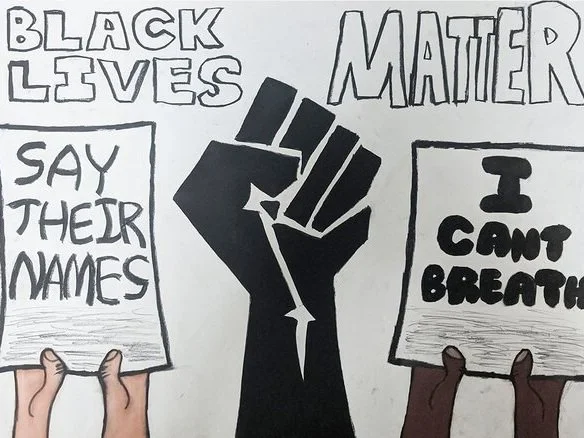 BLACK
LIVES
MATTER
SAY
THEIR
NAMES
I
CANT
BREATH